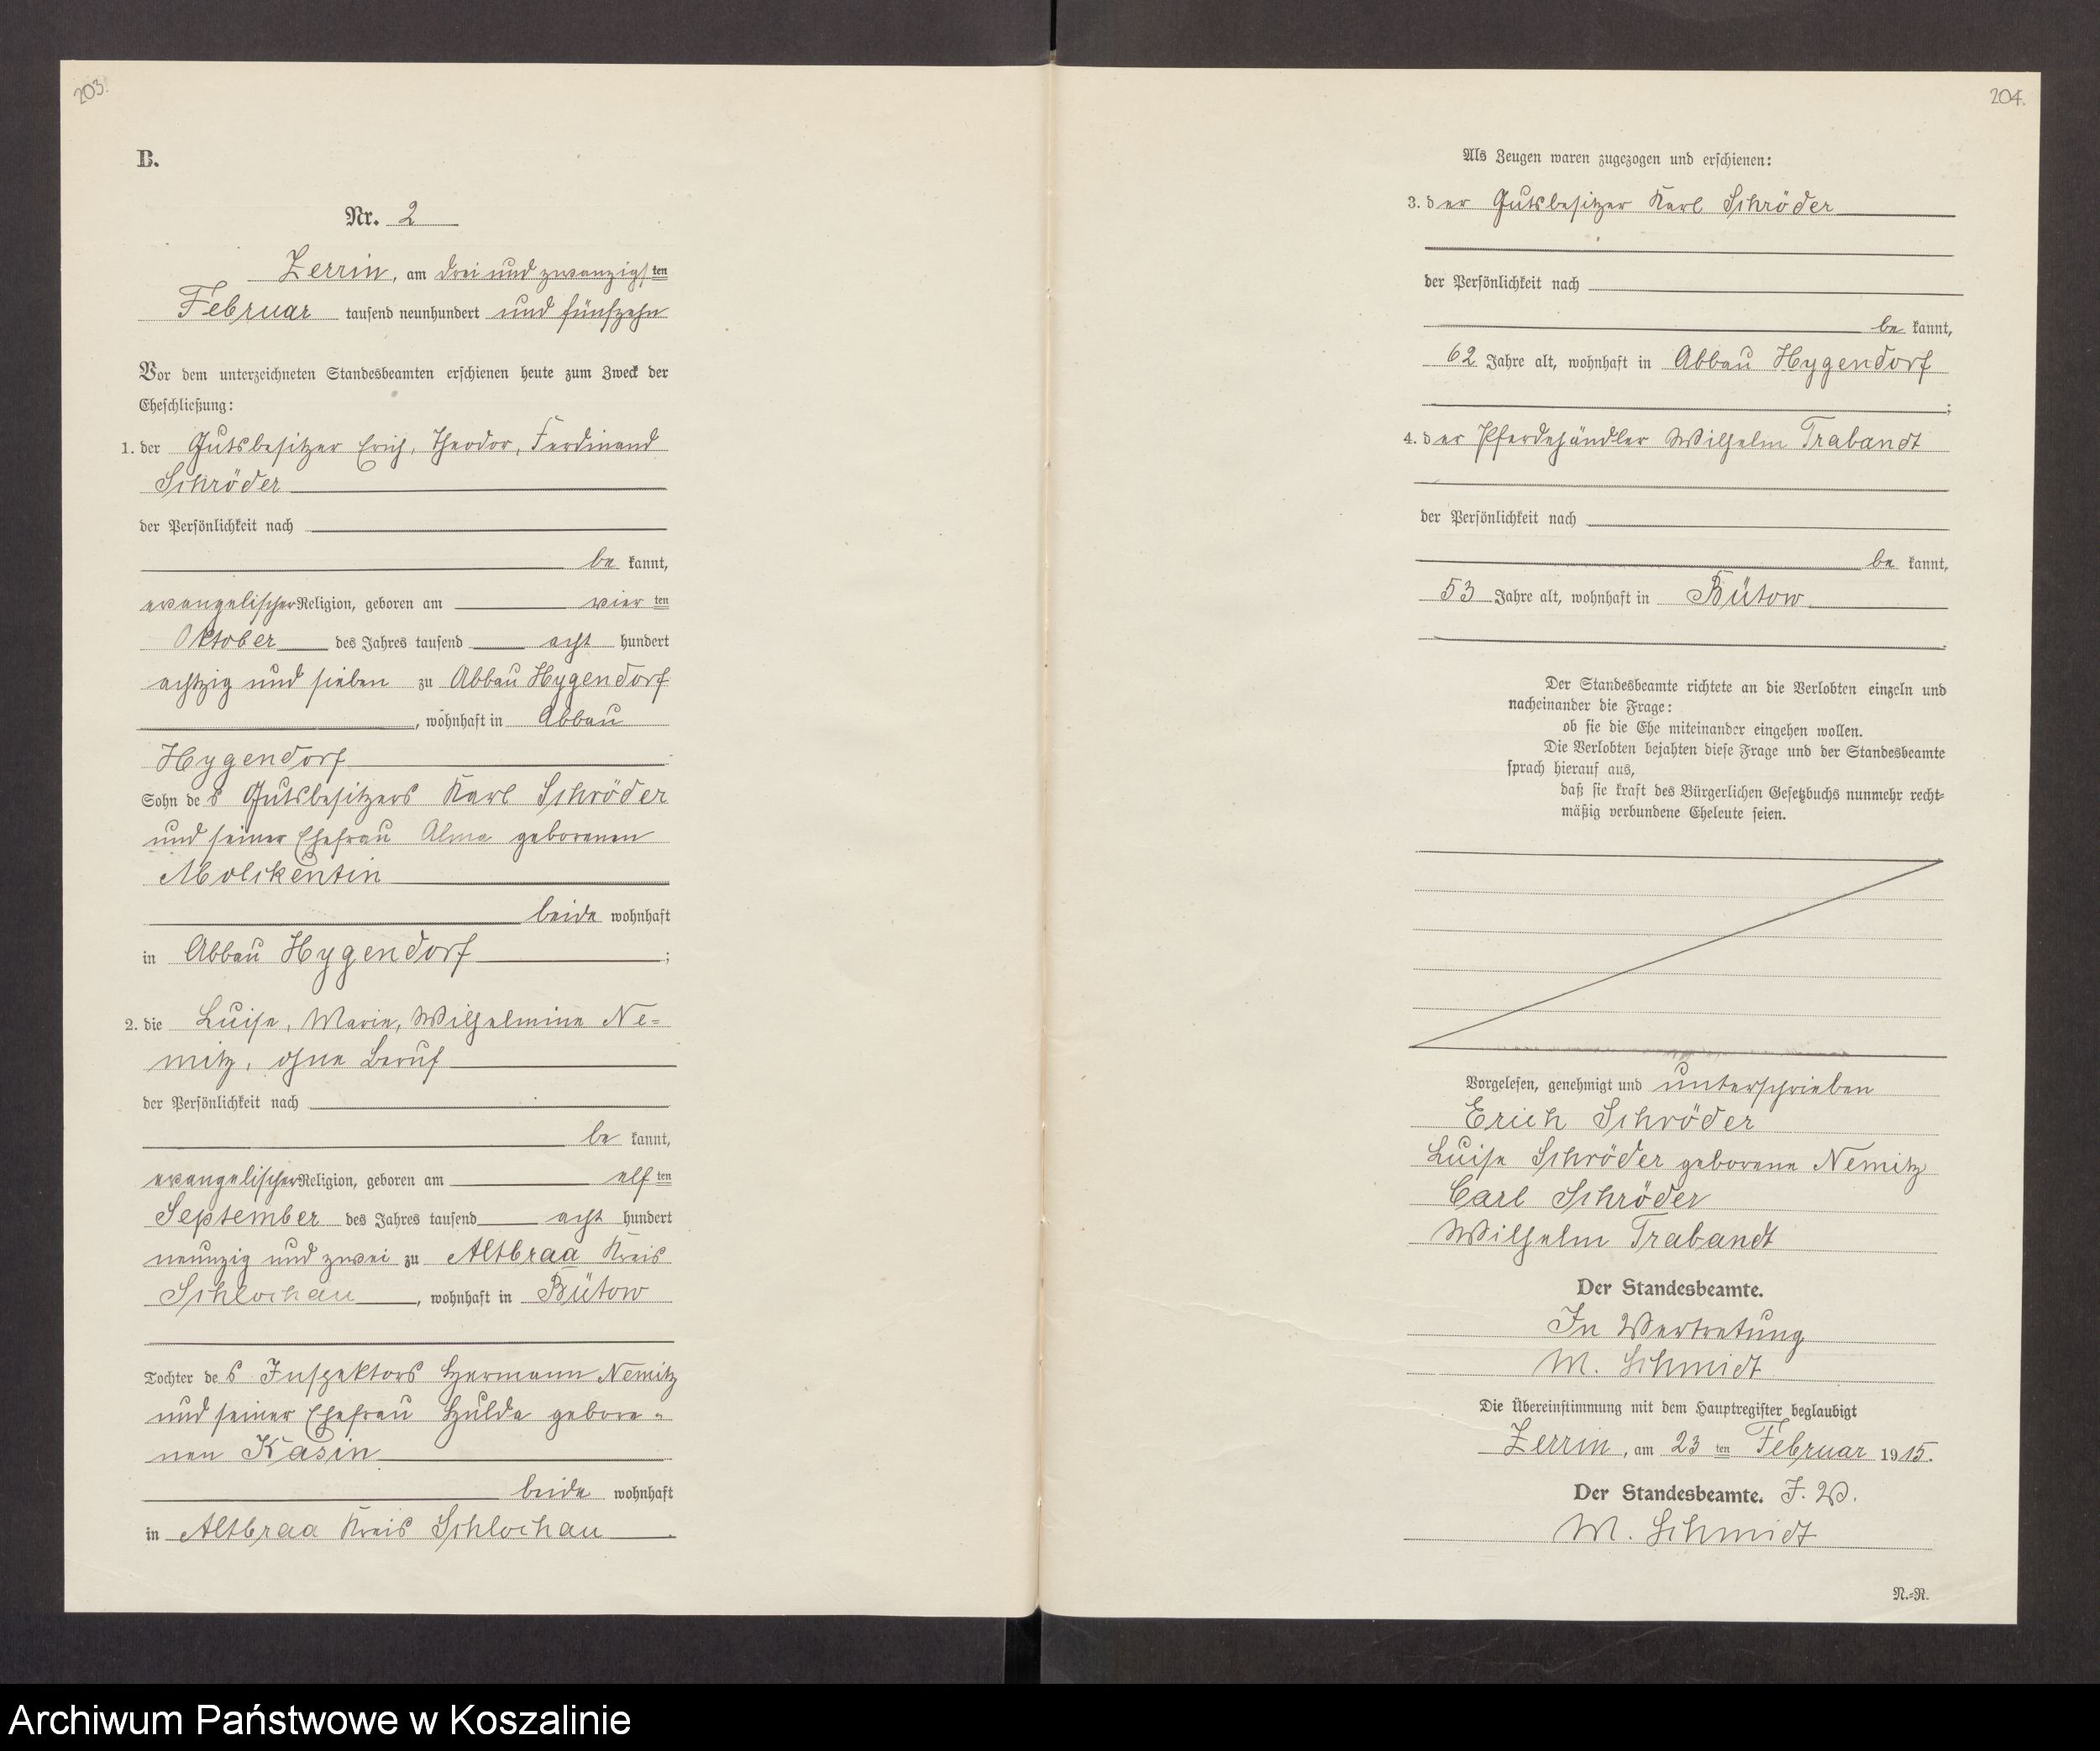 203.
B.
Nr. 2
Zerrin, am drei und zwanzigsten
Februar tausend neunhundert und fünfzehn
Vor dem unterzeichneten Standesbeamten erschienen heute zum Zweck der
Eheschließung:
1. der Gutsbesitzer Erich, Theodor, Ferdinand
Schröder
der Persönlichkeit nach
be kannt,
evangelischer Religion, geboren am vier ten
Oktober des Jahres tausend acht hundert
achtzig und sieben zu Abbau Hygendorf
, wohnhaft in Abbau
Hygendorf
Sohn des Gutsbesitzers Karl Schröder
und seiner Ehefrau Alma geborenen
Molckentin
beide wohnhaft
in Abbau Hygendorf ;
2. die Luise, Marie, Wilhelmine Ne=
mitz, ohne Beruf
der Persönlichkeit nach
be kannt,
evangelischer Religion, geboren am elf ten
September des Jahres tausend acht hundert
neunzig und zwei zu Altbraa Kreis
Schlochau , wohnhaft in Bütow
Tochter des Inspektors Hermann Nemitz
und seiner Ehefrau Hulda gebore=
nen Kasin
beide wohnhaft
in Altbraa Kreis Schlochau .
204.
Als Zeugen waren zugezogen und erschienen:
3. der Gutsbesitzer Karl Schröder
der Persönlichkeit nach
be kannt,
62 Jahre alt, wohnhaft in Abbau Hygendorf
;
4. der Pferdehändler Wilhelm Trabandt
der Persönlichkeit nach
be kannt,
53 Jahre alt, wohnhaft in Bütow
.
Der Standesbeamte richtete an die Verlobten einzeln und
nacheinander die Frage:
ob sie die Ehe miteinander eingehen wollen.
Die Verlobten bejahten diese Frage und der Standesbeamte
sprach hierauf aus,
daß sie kraft des Bürgerlichen Gesetzbuchs nunmehr recht=
mäßig verbundene Eheleute seien.
Vorgelesen, genehmigt und unterschrieben
Erich Schröder
Luise Schröder geborene Nemitz
Carl Schröder
Wilhelm Trabandt
Der Standesbeamte.
In Vertretung
M. Schmidt
Die Übereinstimmung mit dem Hauptregister beglaubigt
Zerrin, am 23 ten Februar 1915.
Der Standesbeamte. I. V.
M. Schmidt
N.=R.
Archiwum Państwowe w Koszalinie